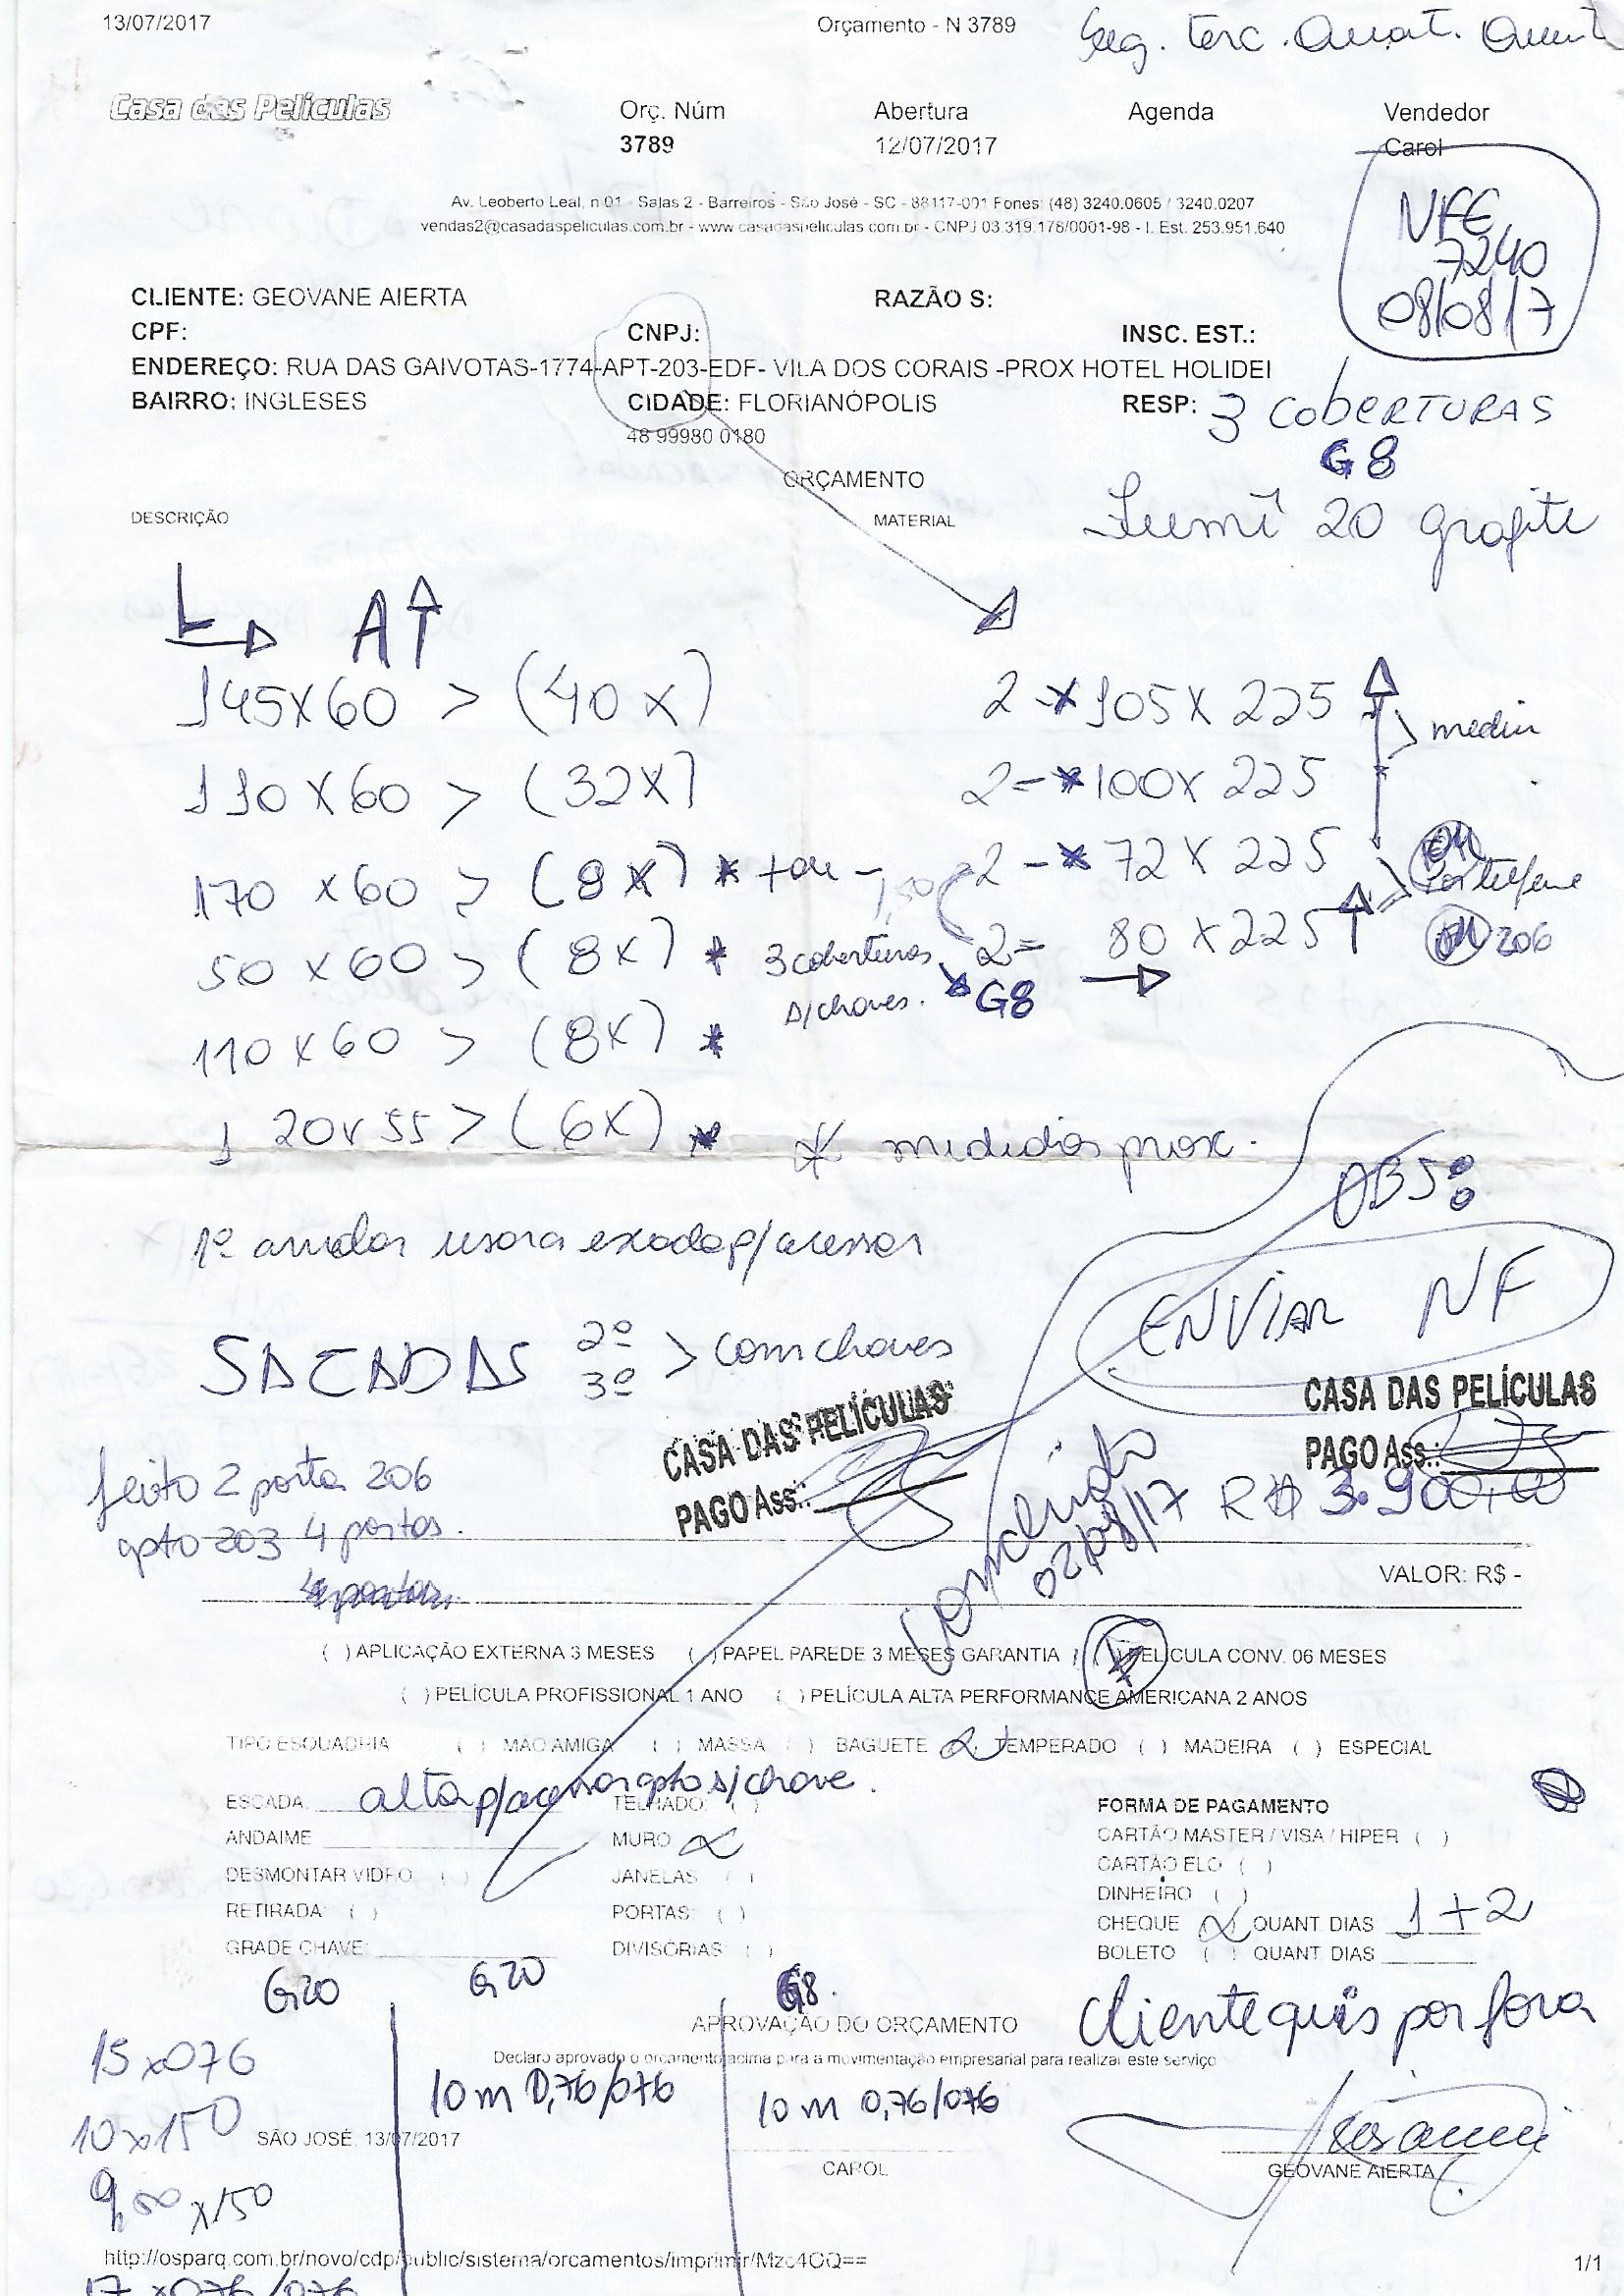 13/07/2017 Orçamento - N 3789
Seg. Terc. Quart. Quint
Casa das Películas
Orç. Núm Abertura Agenda Vendedor
3789 12/07/2017 Carol
NFE
7240
08/08/17
Av. Leoberto Leal, n 01 - Salas 2 - Barreiros - São José - SC - 88117-001 Fones: (48) 3240.0605 / 3240.0207
vendas2@casadaspeliculas.com.br - www.casadaspeliculas.com.br - CNPJ 03.319.178/0001-98 - I. Est. 253.951.640
CLIENTE: GEOVANE AIERTA RAZÃO S:
CPF: CNPJ: INSC. EST.:
ENDEREÇO: RUA DAS GAIVOTAS-1774-APT-203-EDF- VILA DOS CORAIS -PROX HOTEL HOLIDEI
BAIRRO: INGLESES CIDADE: FLORIANÓPOLIS RESP: 3 COBERTURAS
48 99980 0180
G8
ORÇAMENTO
DESCRIÇÃO MATERIAL
20 grafite
L A
145x60 > (40x) 2-*105x225 medir
110x60 > (32x) 2-*100x225
170x60 > (8x) * 2-*72x225
50x60 > (8x) * 3 coberturas 2= 80x225 206
s/chaves. G8
110x60 > (8x) *
120x55 > (6x) * * medidas prox.
OBS:
1º andar usara escada p/acessar
ENVIAR NF
SACADAS 2º 3º > com chaves
CASA DAS PELÍCULAS
PAGO Ass.:
CASA DAS PELÍCULAS
PAGO Ass.:
feito 2 porta 206
apto 203 4 portas.
Concluido
02/08/17
R$ 3.900,00
VALOR: R$ -
( ) APLICAÇÃO EXTERNA 3 MESES ( ) PAPEL PAREDE 3 MESES GARANTIA ( ) PELÍCULA CONV. 06 MESES
( ) PELÍCULA PROFISSIONAL 1 ANO ( ) PELÍCULA ALTA PERFORMANCE AMERICANA 2 ANOS
TIPO ESQUADRIA ( ) MÃO AMIGA ( ) MASSA ( ) BAGUETE TEMPERADO ( ) MADEIRA ( ) ESPECIAL
ESCADA: alta p/acessar apto s/chave. TELHADO: ( )
FORMA DE PAGAMENTO
ANDAIME MURO CARTÃO MASTER / VISA / HIPER ( )
DESMONTAR VIDRO: ( ) JANELAS ( ) CARTÃO ELO ( )
RETIRADA: ( ) PORTAS: ( ) DINHEIRO ( )
CHEQUE QUANT DIAS 1+2
GRADE CHAVE: DIVISÓRIAS ( ) BOLETO ( ) QUANT DIAS
G20 G20 G8.
Cliente quis por fora
APROVAÇÃO DO ORÇAMENTO
Declaro aprovado o orçamento acima para a movimentação empresarial para realizar este serviço
15x076 10m 0,76/076 10m 0,76/076
10x150
SÃO JOSÉ, 13/07/2017
CAROL GEOVANE AIERTA
9,50x150
http://osparq.com.br/novo/cdp/public/sistema/orcamentos/imprimir/Mzc4OQ== 1/1
17x076/076